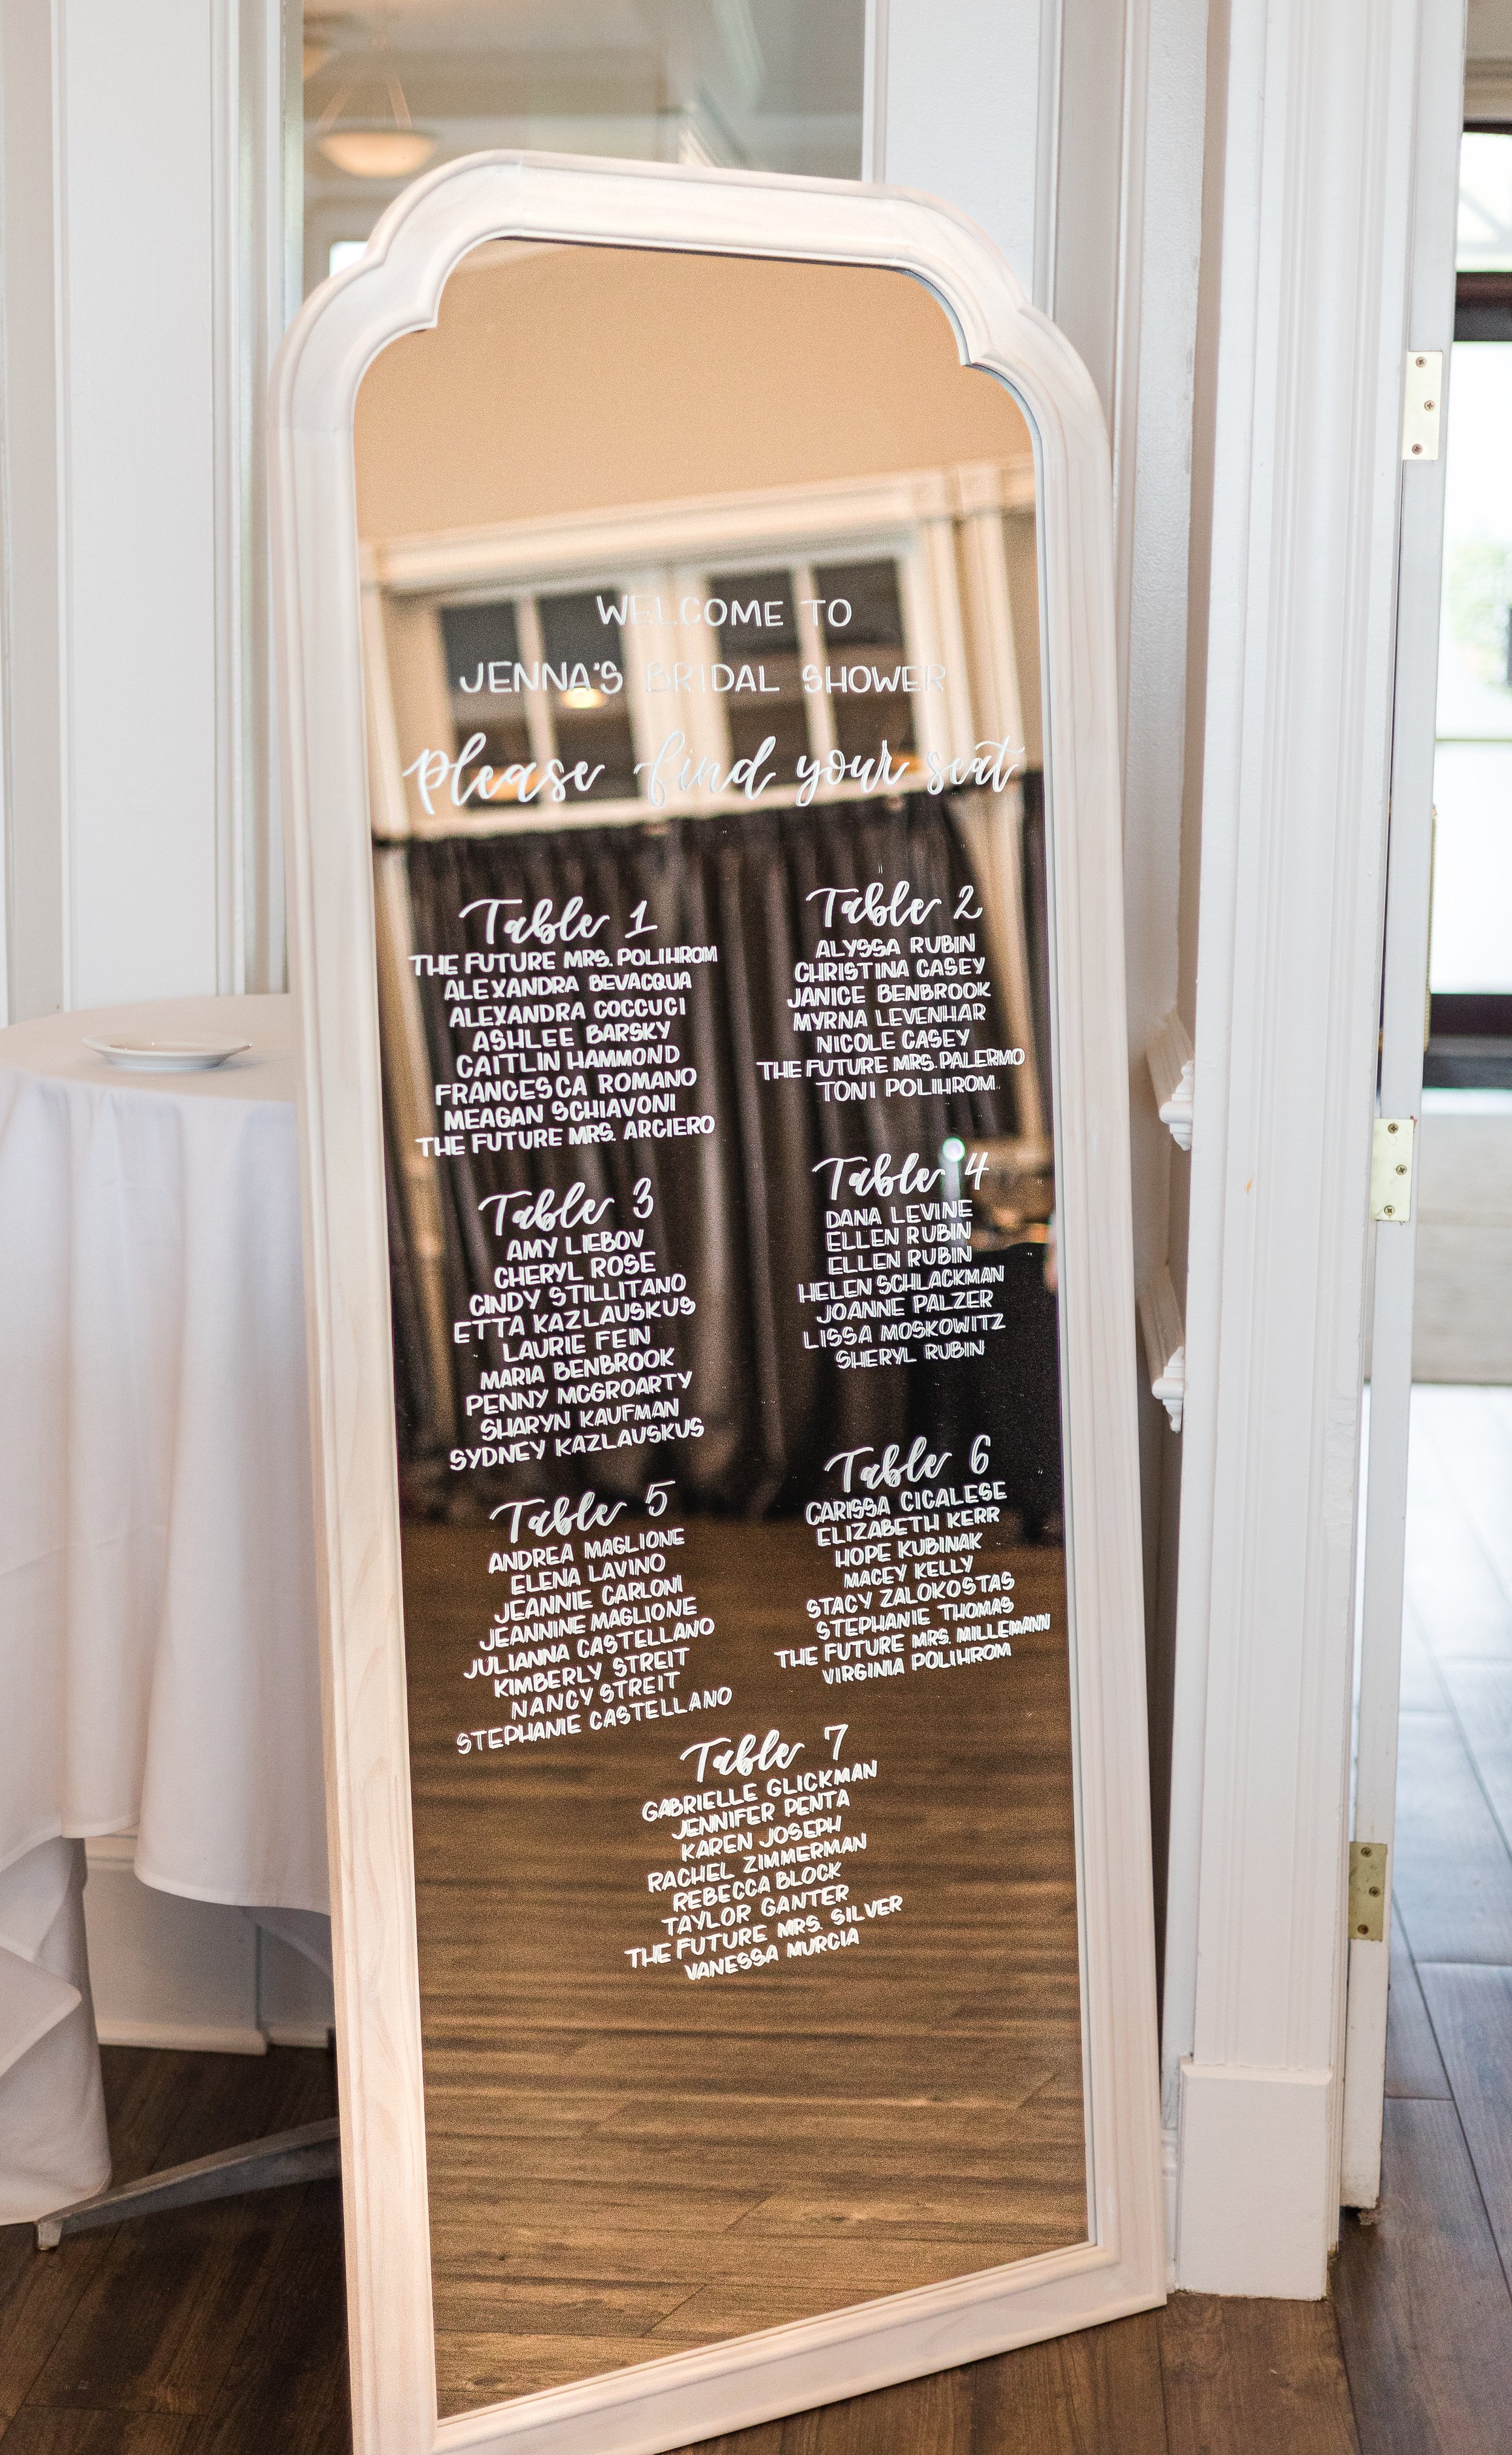 WELCOME TO
JENNA'S BRIDAL SHOWER
please find your seat
Table 1
THE FUTURE MRS. POLIHROM
ALEXANDRA BEVACQUA
ALEXANDRA COCCUCI
ASHLEE BARSKY
CAITLIN HAMMOND
FRANCESCA ROMANO
MEAGAN SCHIAVONI
THE FUTURE MRS. ARCIERO
Table 2
ALYSSA RUBIN
CHRISTINA CASEY
JANICE BENBROOK
MYRNA LEVENHAR
NICOLE CASEY
THE FUTURE MRS. PALERMO
TONI POLIHROM
Table 3
AMY LIEBOV
CHERYL ROSE
CINDY STILLITANO
ETTA KAZLAUSKUS
LAURIE FEIN
MARIA BENBROOK
PENNY MCGROARTY
SHARYN KAUFMAN
SYDNEY KAZLAUSKUS
Table 4
DANA LEVINE
ELLEN RUBIN
ELLEN RUBIN
HELEN SCHLACKMAN
JOANNE PALZER
LISSA MOSKOWITZ
SHERYL RUBIN
Table 5
ANDREA MAGLIONE
ELENA LAVINO
JEANNIE CARLONI
JEANNINE MAGLIONE
JULIANNA CASTELLANO
KIMBERLY STREIT
NANCY STREIT
STEPHANIE CASTELLANO
Table 6
CARISSA CICALESE
ELIZABETH KERR
HOPE KUBINAK
MACEY KELLY
STACY ZALOKOSTAS
STEPHANIE THOMAS
THE FUTURE MRS. MILLEMANN
VIRGINIA POLIHROM
Table 7
GABRIELLE GLICKMAN
JENNIFER PENTA
KAREN JOSEPH
RACHEL ZIMMERMAN
REBECCA BLOCK
TAYLOR GANTER
THE FUTURE MRS. SILVER
VANESSA MURCIA